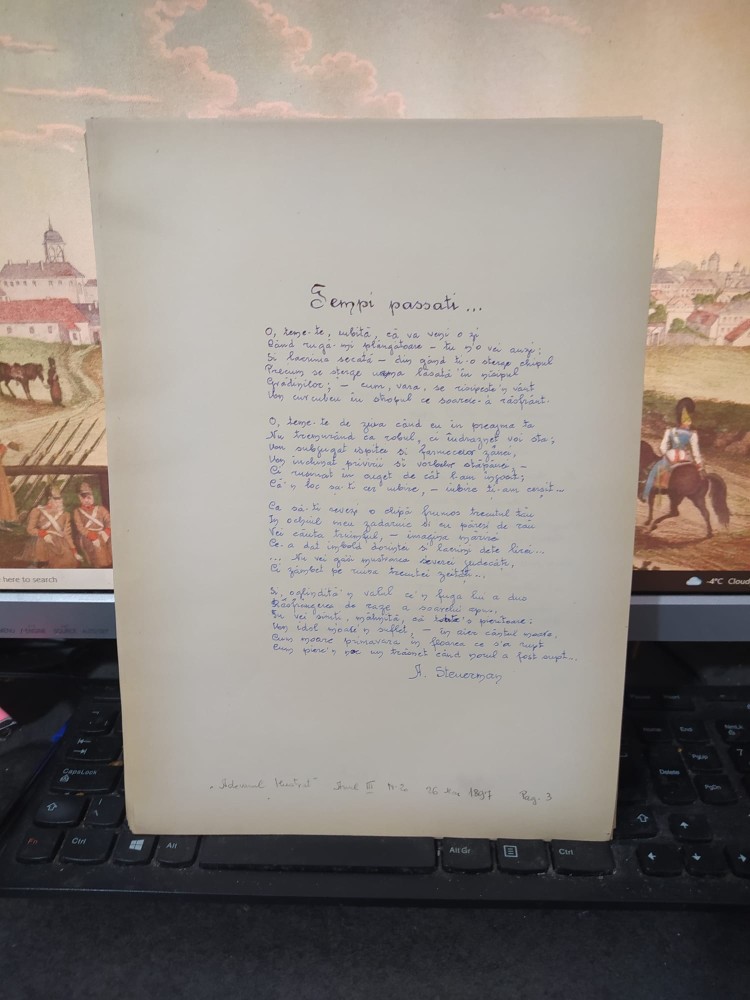 Tempi passati...
O, teme-te, iubită, că va veni o zi
Când ruga-mi plângătoare – tu n'o vei auzi;
Si lacrima secată – din gând ti-o sterge chipul
Precum se sterge urma lăsată'în nisipul
Grădinilor; – cum, vara, se risipeste'n vânt
Un curcubeu în stropul ce soarele-a răsfrânt.
O, teme-te de ziua când eu în preajma ta
Nu tremurând ca robul, ci îndraznet voi sta;
Von subjugat ispitei si farmecelor zânei,
Von închinat privirii si vorbelor stăpânei, –
Ci rusinat în cuget de cât l-am injosit;
Că'n loc sa-ti cer iubire, – iubire ti-am cersit...
Ca să-ti revezi o clipă frumos trecutul tău
In ochiul meu zadarnic si cu păreri de rău
Vei căuta triumful, – imagina măririi
Ce-a dat imbold dorintei si lacrimi dete lirei...
... Nu vei găsi mustrarea severei judecăti,
Ci zâmbet pe ruina trecutei
Si, oglindită'n valul ce'n fuga lui a dus
Răsfrângerea de raze a soarelui apus,
Tu vei simti, mâhnită, că toate's pieritoare:
Un idol moare'n suflet, – în aier cântul moare,
Cum moare primavara in floarea ce s'a rupt
Cum piere'n un trăsnet când norul a fost supt...
A. Steuerman
" Ilustrat" Anul III Nr 26 1897 Pag. 3
here to search
-4°C Cloud
CapsLock
Fn
Ctrl
Alt
Alt Gr
Ctrl
Home
End
PgUp
Delete
PgDn